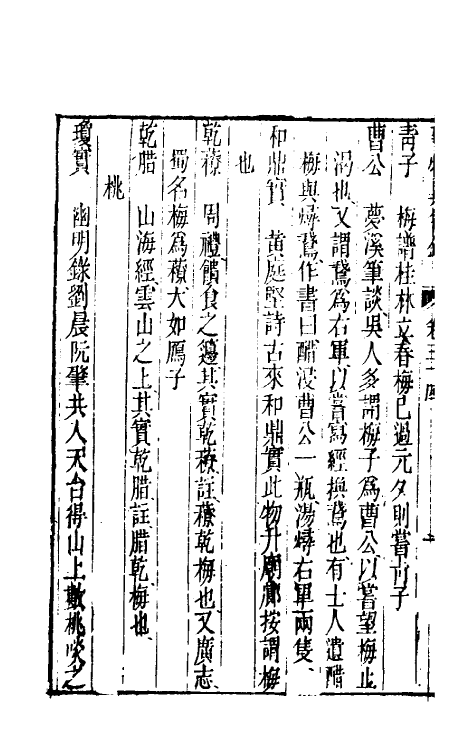 青子　梅譜桂林立春梅已過元夕則嘗青子
曹公　夢溪筆談吳人多謂梅子為曹公以嘗望梅止
渴也又謂鵞為右軍以嘗寫經換鵞也有士人遺醋
梅與燖鵞作書曰醋浸曹公一瓶湯燖右軍兩隻
和鼎實　黄庭堅詩古來和鼎實此物升廟廊按謂梅
也
乾䕩　周禮饋食之籩其實乾䕩註䕩乾梅也又廣志
蜀名梅為䕩大如鴈子
乾腊　山海經雲山之上其實乾腊註腊乾梅也
桃
瓊實　幽明錄劉晨阮肇共入天台得山上數桃啖之